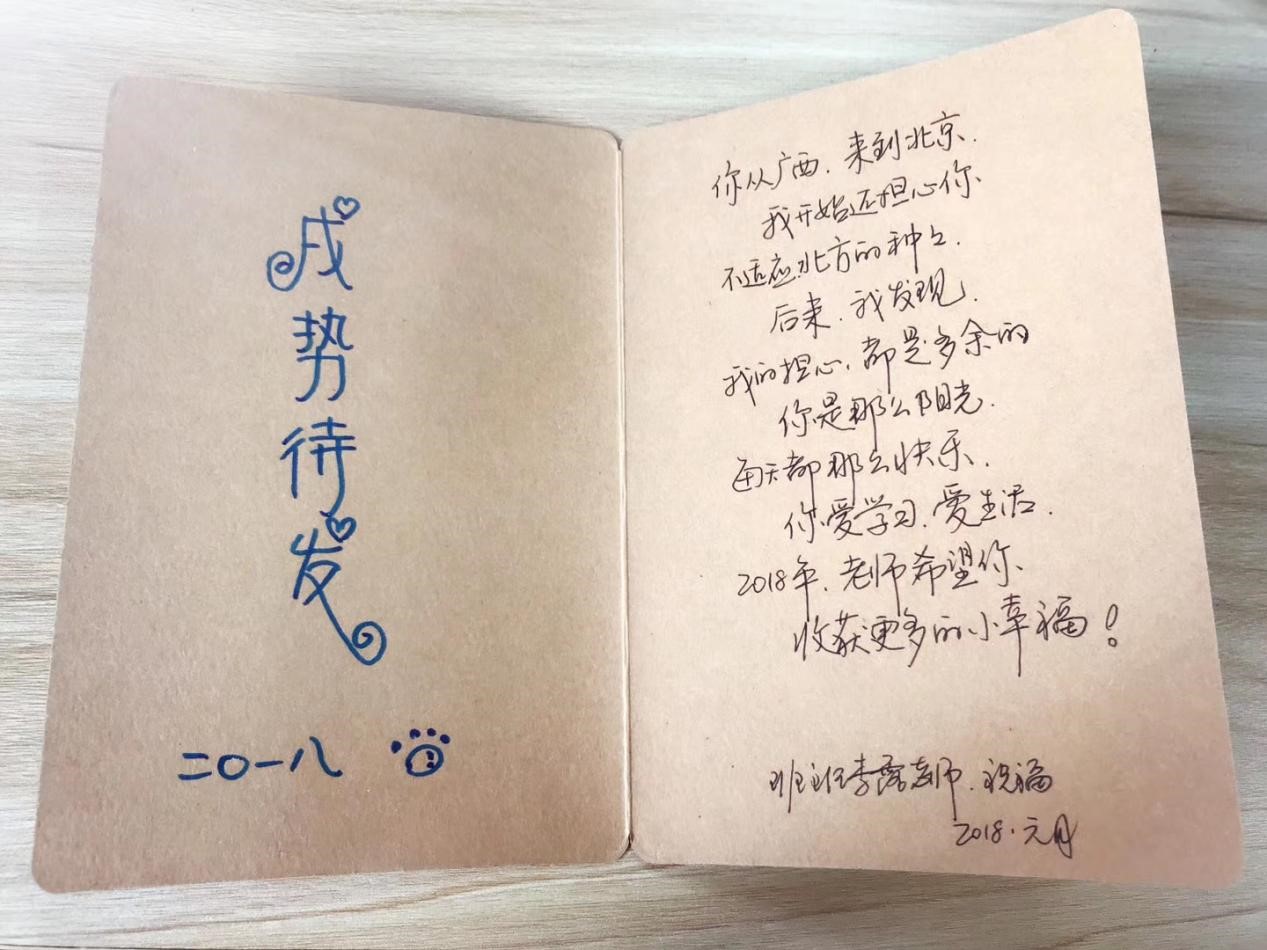 戌势待发
二〇一八
你从广西.来到北京.
我开始还担心你.
不适应.北方的种々.
后来.我发现.
我的担心.都是多余的
你是那么阳光.
每天都那么快乐.
你爱学习.爱生活.
2018年.老师希望你.
收获更多的小幸福!
班主任李露老师.祝福
2018.元月